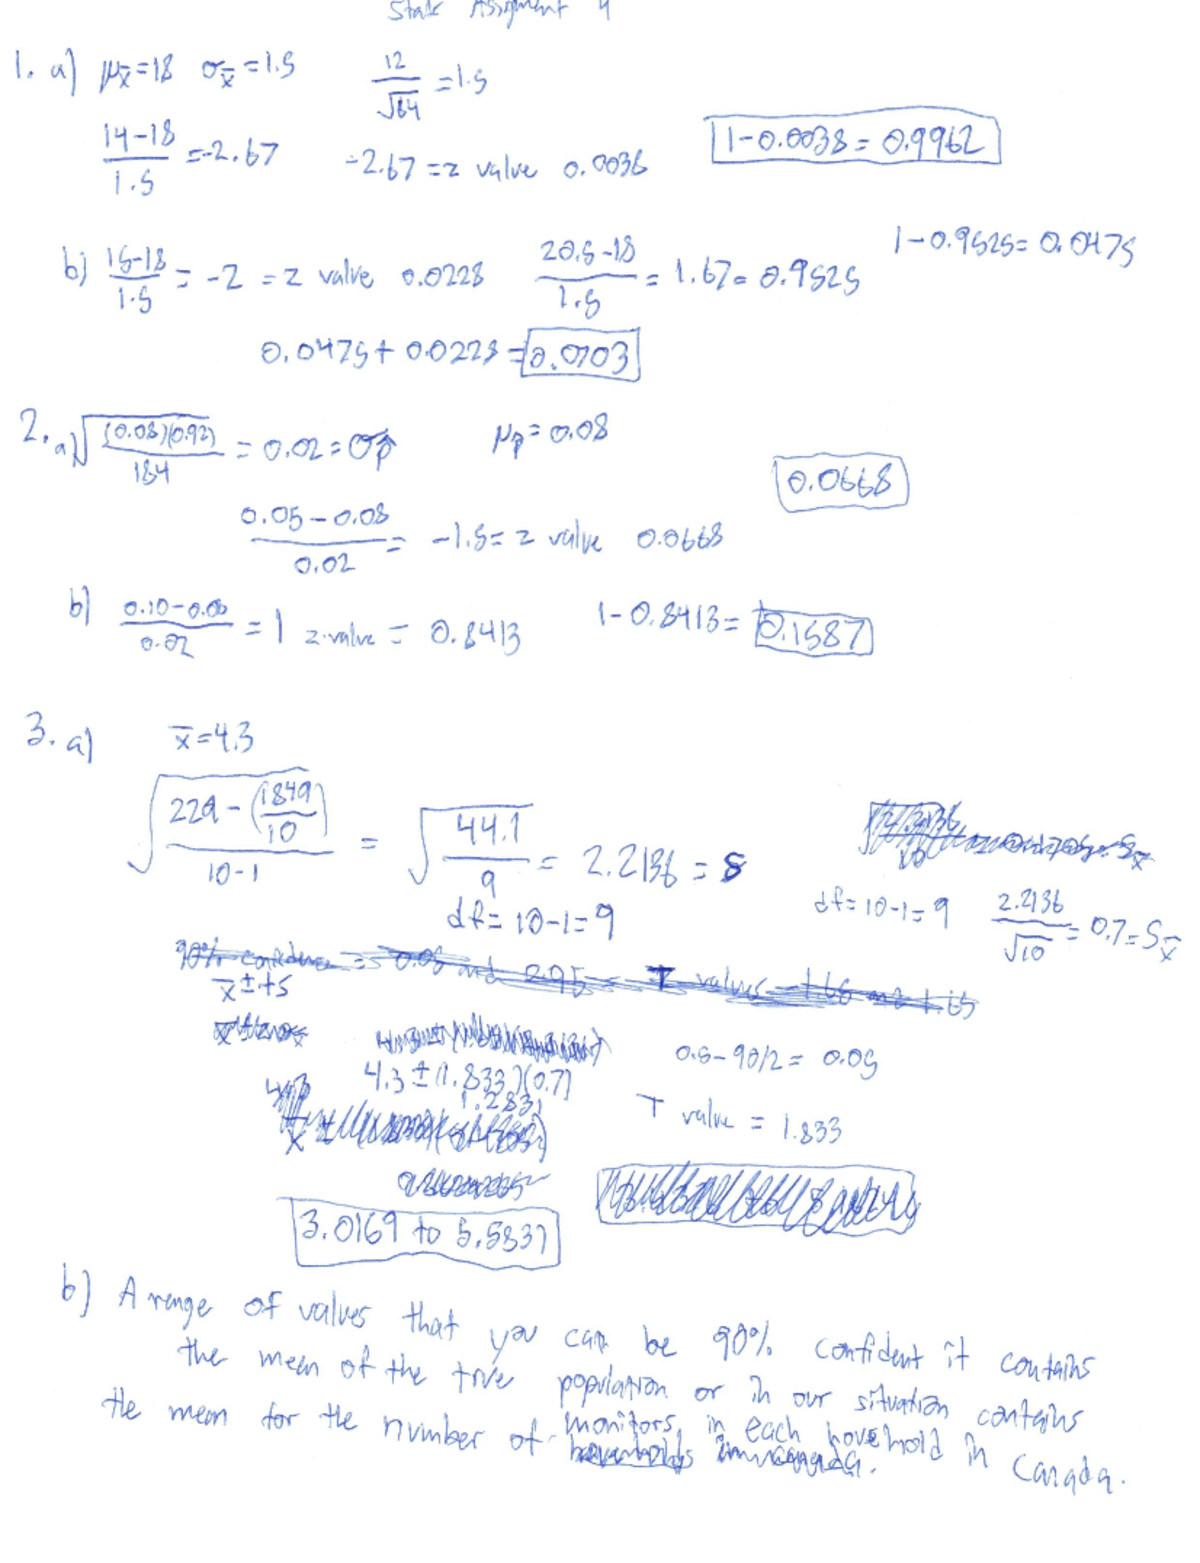 Stats Assignment 4
1. a) μx̄=18 σx̄=1.5 12/√64 =1.5
14-18/1.5 =-2.67 -2.67=z value 0.0038 1-0.0038=0.9962
b) 15-18/1.5 = -2 = z value 0.0228 20.5-18/1.5 = 1.67= 0.9525 1-0.9525=0.0475
0.0475+0.0228=0.0703
2. a) √(0.08)(0.92)/184 = 0.02=σp̂ μp̂=0.08
0.0668
0.05-0.08/0.02 = -1.5= z value 0.0668
b) 0.10-0.08/0.02 =1 z-value = 0.8413 1-0.8413=0.1587
3. a) x̄=4.3
√229-(1849/10)/10-1 = √44.1/9 = 2.2136=s
df=10-1=9 df=10-1=9 2.2136/√10 = 0.7=Sx̄
90% confidence = 0.05 and 0.95 = T values -1.65 and 1.65
x̄±ts
0.5-90/2= 0.05
4.3±(1.833)(0.7)
1.2831
T value = 1.833
3.0169 to 5.5831
b) A range of values that you can be 90% confident it contains
the mean of the true population or in our situation contains
the mean for the number of monitors in each household in Canada.